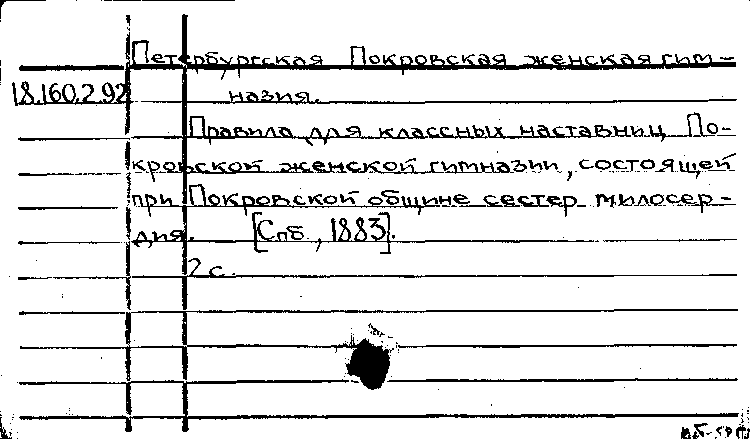 Петербургская Покровская женская гим-
18.160.2.92 назия.
Правила для классных наставниц По-
кровской женской гимназии, состоящей
при Покровской общине сестер милосер-
дия. [Спб., 1883].
2 с.